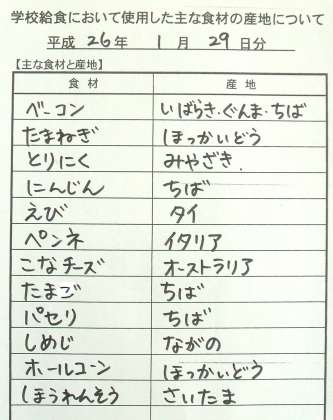 学校給食において使用した主な食材の産地について
平成 26 年 1 月 29 日分
【主な食材と産地】
食材 産地
ベーコン いばらき・ぐんま・ちば
たまねぎ ほっかいどう
とりにく みやざき
にんじん ちば
えび タイ
ペンネ イタリア
こなチーズ オーストラリア
たまご ちば
パセリ ちば
しめじ ながの
ホールコーン ほっかいどう
ほうれんそう さいたま